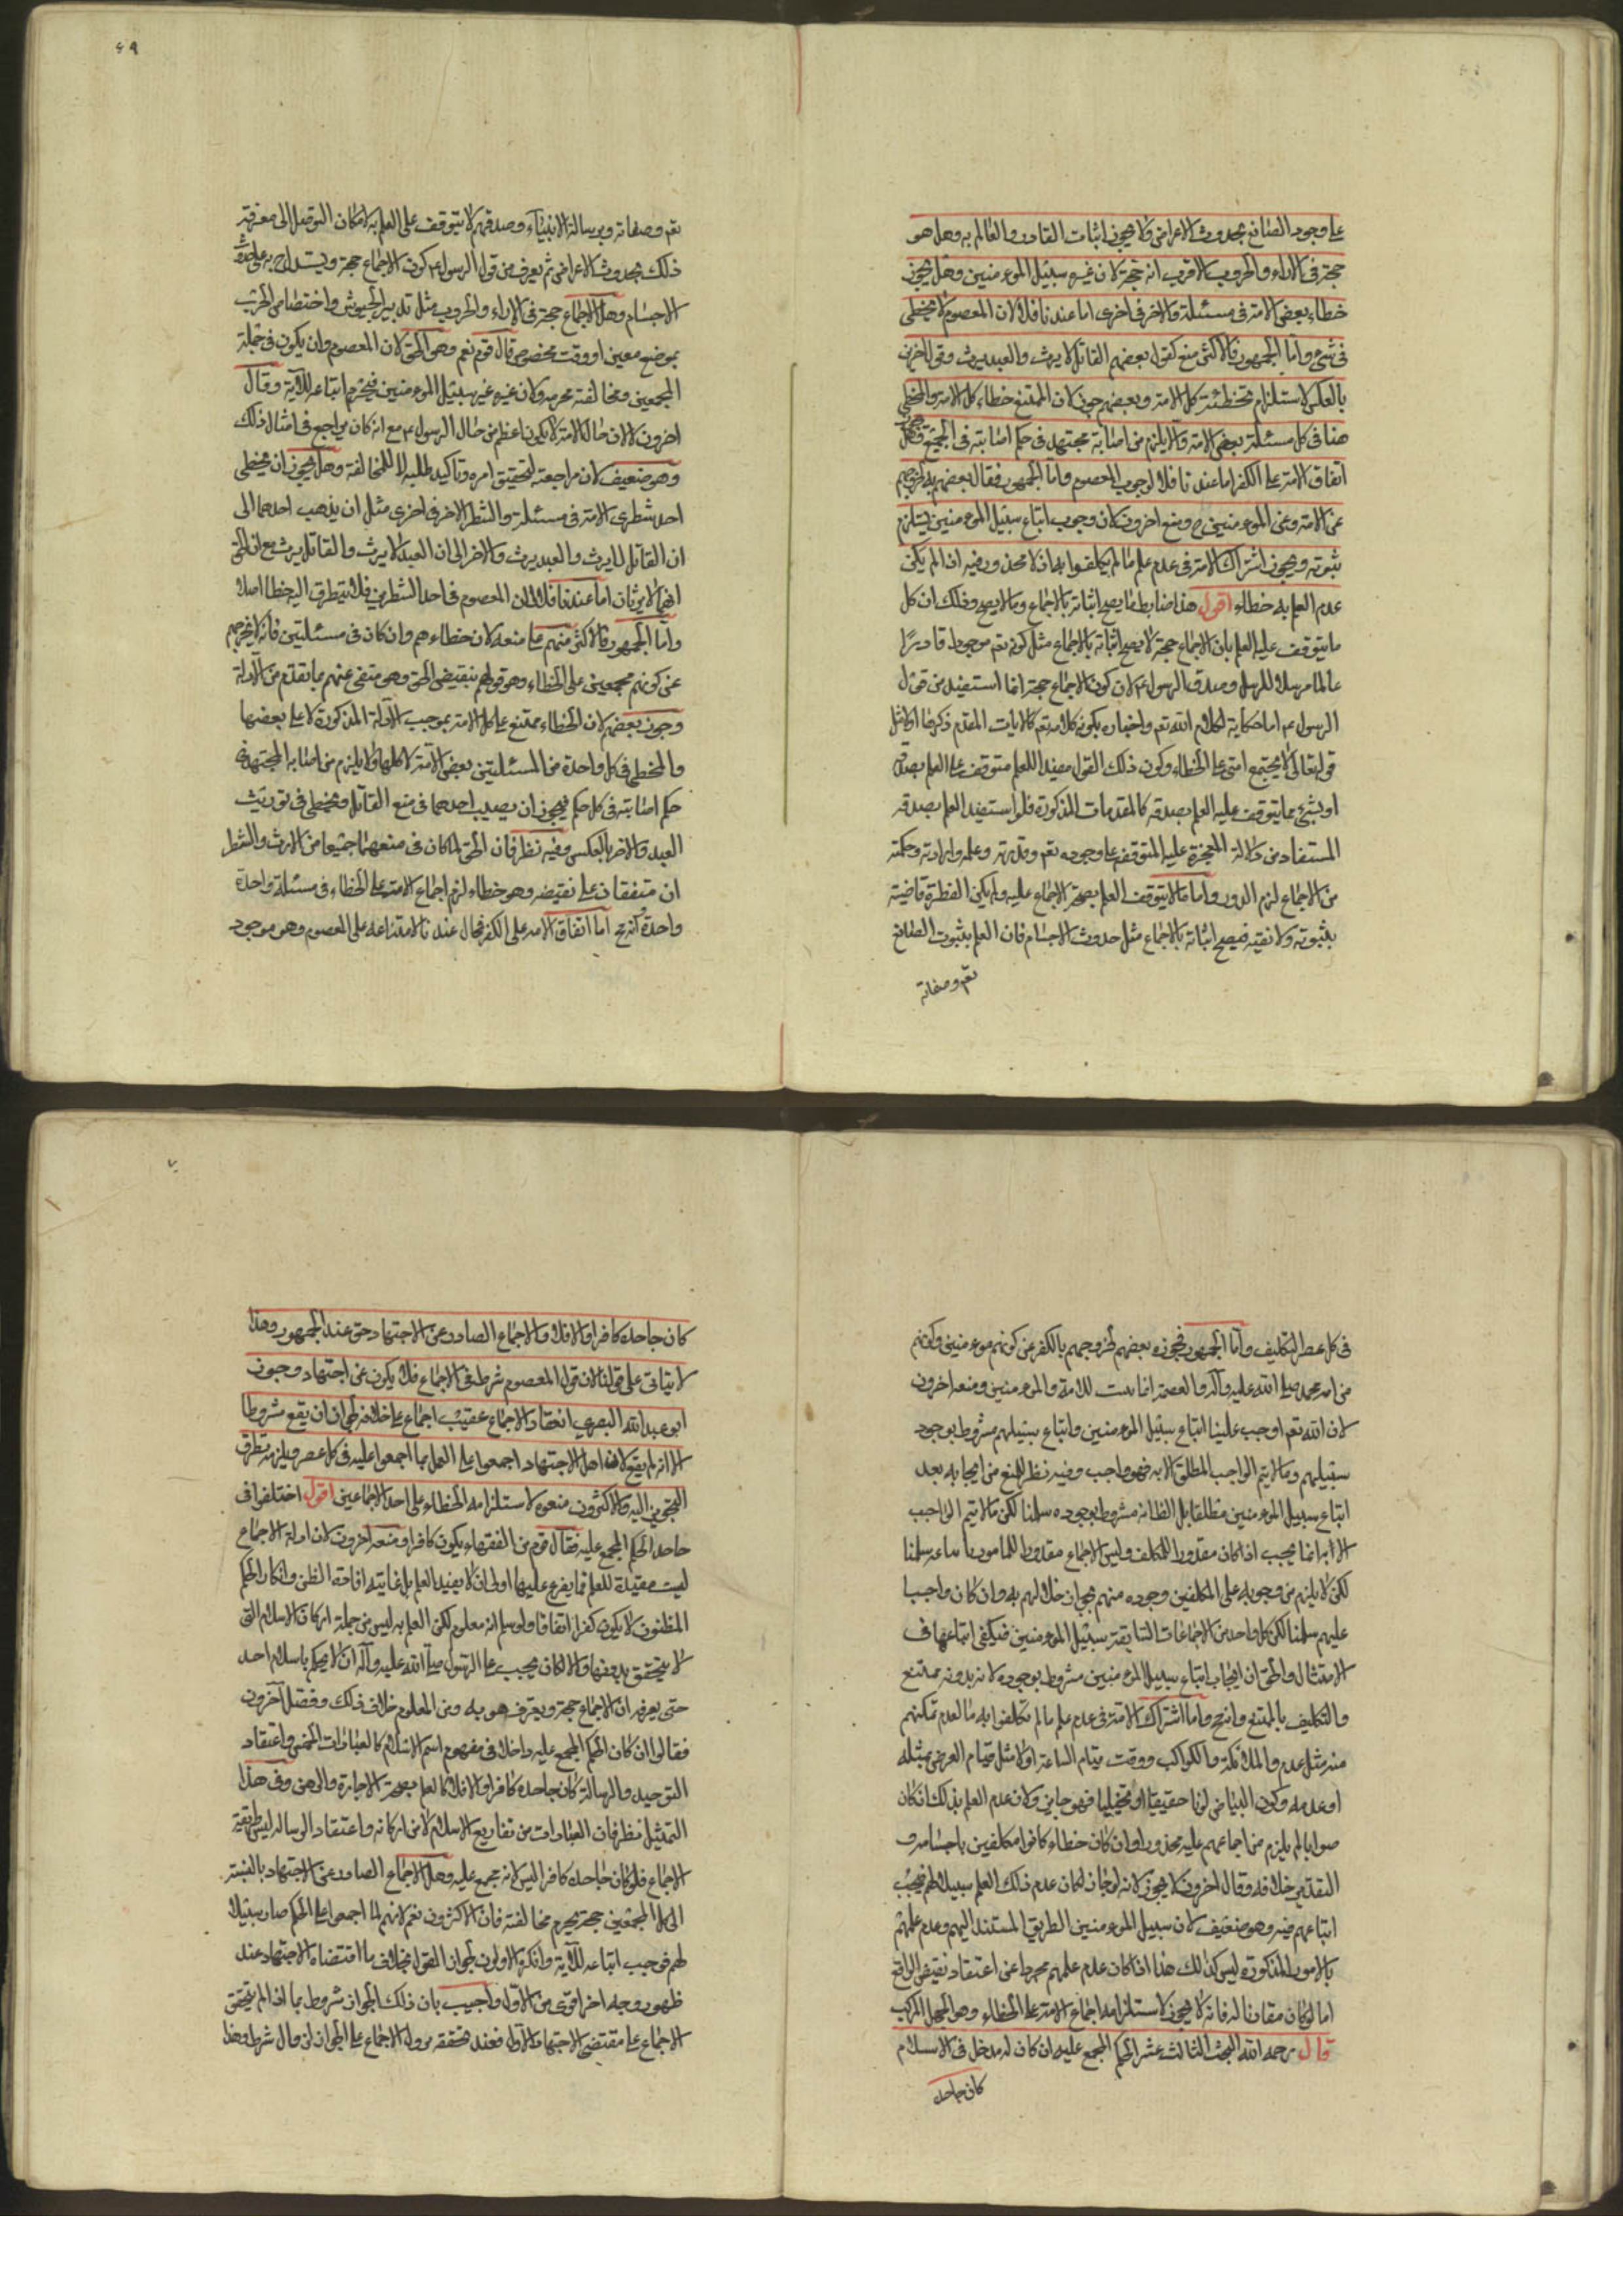 على وجود الصانع بحدوث الاعراض ولا يجوز اثبات القادر والعالم به وهل هو
حجة في الاراء والحروب الاقرب انه حجة لان غيره سبيل المومنين وهل يجوز
خطاء بعض الامة في مسئلة والاخر في اخرى اما عندنا فلا لان المعصوم لا يخطى
في شىء واما الجمهور فالاكثر منع كقول بعضهم القاتل لا يرث والعبد يرث وقول الاخرين
بالعكس لاستلزام تخطئة كل الامة وبعضهم جوز لان الممتنع خطاء كل الامة والمخطى
هنا في كل مسئلة بعض الامة ولا يلزم من اصابة مجتهد في حكم اصابته في الجميع وهل يجوز
اتفاق الامة على الكفر اما عندنا فلا لوجوب المعصوم واما الجمهور فقال بعضهم به لخروجهم
عن الامة وعن المومنين ح ومنع اخرون لان وجوب اتباع سبيل المومنين يستلزم
ثبوته ويجوز اشتراك الامة في عدم علم ما لم يكلفوا به اذ لا محذور فيه اذ لم يكن
عدم العلم به خطاء اقول هذا ضابط ما يصح اثباته بالاجماع وما لا يصح وذلك ان كل
ما يتوقف عليه العلم بان الاجماع حجة لا يصح اثباته بالاجماع مثل كونه تعم موجودا قادرا
عالما مرسلا للرسل وصدق الرسول ع لان كون الاجماع حجة انما استفيد من قول
الرسول ع اما حكاية لكلام الله تعم واخباره بكونه كلامه تعم كالايات المقدم ذكرها او لا مثل
قوله تعالى لا يجتمع امتى على الخطاء وكون ذلك القول مفيدا للعلم متوقف على العلم بصدقه
او بشىء مما يتوقف عليه العلم بصدقه كالمقدمات المذكورة فلو استفيد العلم بصدقه
المستفاد من دلالة المعجزة عليه المتوقف على وجوده تعم وقدرته وعلمه وارادته وحكمته
من الاجماع لزم الدور واما ما لا يتوقف العلم بصحة الاجماع عليه ولم يكن الفطرة قاضية
بثبوته ولا نفيه فيصح اثباته بالاجماع مثل حدوث الاجسام فان العلم بثبوت الصانع
تعم وصفاته
٤٩
تعم وصفاته وبرسالة الانبياء وصدقهم لا يتوقف على العلم به لامكان التوصل الى معرفة
ذلك بحدوث الاعراض ثم يعرف من قول الرسول ع كون الاجماع حجة ويستدل ح به على حدوث
الاجسام وهل الاجماع حجة في الاراء والحروب مثل تدبير الجيوش واختصاص الحرب
بموضع معين او وقت مخصوص قال قوم نعم وهو الحق لان المعصوم وان يكون في جملة
المجمعين ومخالفته محرمه ولان غيره غير سبيل المومنين فيحرم اتباعه للاية وقال
اخرون لا لان حال الامة لا يكون اعظم من حال الرسول ع مع انه كان يراجع في امثال ذلك
وهو ضعيف لان مراجعته لتحقيق امره وتاكيد طلبه لا للمخالفة وهل يجوز ان يخطى
احد شطرى الامة في مسئلة والشطر الاخر في اخرى مثل ان يذهب احدهما الى
ان القاتل لا يرث والعبد يرث والاخر الى ان العبد لا يرث والقاتل يرث مع ان الحق
انهما لا يرثان اما عندنا فلا لان المعصوم في احد الشطرين فلا يتطرق اليه خطا اصلا
واما الجمهور فالاكثر منهم على منعه لان خطاءهم وان كان في مسئلتين فانه لا يخرجهم
عن كونهم مجمعين على الخطاء وهو قولهم بنقيض الحق وهو منفى عنهم بما تقدم من الادلة
وجوز بعضهم لان الخطاء ممتنع على كل الامة بموجب الادلة المذكورة لا على بعضها
والمخطى في كل واحدة من المسئلتين بعض الامة لا كلها ولا يلزم من اصابة المجتهد في
حكم اصابته في كل حكم فيجوز ان يصيب احدهما في منع القاتل ويخطى في توريث
العبد والاخر بالعكس وفيه نظر فان الحق لما كان في منعهما جميعا من الارث والشطر
ان متفقان على نقيضه وهو خطاء لزم اجماع الامة على الخطاء في مسئلة واحدة
واحدة اما اتفاق الامه على الكفر فمحال عندنا لامتناعه على المعصوم وهو موجود
في كل عصر التكليف واما الجمهور فجوزه بعضهم لخروجهم بالكفر عن كونهم مومنين وكونهم
من امه محمد صلى الله عليه وآله والعصمة انما ثبت للامة والمومنين ومنعه اخرون
لان الله تعم اوجب علينا اتباع سبيل المومنين واتباع سبيلهم مشروط بوجود
سبيلهم وما لا يتم الواجب المطلق الا به فهو واجب وفيه نظر للمنع من ايجابه بعد
اتباع سبيل المومنين مطلقا بل الظا انه مشروط بوجوده سلمنا لكن ما لا يتم الواجب
الا به انما يجب اذا كان مقدورا للمكلف وليس الاجماع مقدورا للمامور باتباعه سلمنا
لكن لا يلزم من وجوبه على المكلفين وجوده منهم بجواز اخلالهم به وان كان واجبا
عليهم سلمنا لكن كل واحد من الاجماعات السابقة سبيل المومنين فيكفى اتباعها في
الامتثال والحق ان ايجاب اتباع سبيل المومنين مشروط بوجوده لانه بدونه ممتنع
والتكليف بالممتنع واما اشتراك الامة في عدم علم ما لم تكلفوا به ما لعدم تمكنهم
منه مثل عدد الملائكة والكواكب ووقت قيام الساعة او لا مثل قيام العرض بمثله
او عدمه وكون البياض لونا حقيقيا او تخييليا فهو جايز ولان عدم العلم بذلك ان كان
صوابا لم يلزم من اجماعهم عليه محذور وان كان خطاء كانوا مكلفين باجتنابه و
التقدير خلافه وقال اخرون لا يجوز لانه لو جاز لكان عدم ذلك العلم سبيلا لهم فيجب
اتباعهم فيه وهو ضعيف لان سبيل المومنين الطريق المستند اليهم وعدم علمهم
بالامور المذكورة ليس كذلك هذا اذا كان عدم علمهم مجردا عن اعتقاد نقيض الواقع
اما لو كان مقارنا له فانه لا يجوز لاستلزامه اجماع الامة على الخطاء وهو الجهل المركب
قال رحمه الله البحث الثالث عشر الحكم المجمع عليه ان كان له مدخل في الاسلام
كان جاحده
٧٠
كان جاحده كافرا والا فلا والاجماع الصادر عن الاجتهاد حق عند الجمهور وهذا
لا يتاتى على قولنا لان قول المعصوم شرط في الاجماع فلا يكون عن اجتهاد وجوز
ابو عبد الله البصري انعقاد الاجماع عقيب اجماع على خلافه لجواز ان يقع مشروطا
الا انه لم يقع لان اهل الاجتهاد اجمعوا على العمل بما اجمعوا عليه في كل عصر ويلزمه تطرق
التجويز اليه والاكثرون منعوه لاستلزامه الخطاء على احد الاجماعين اقول اختلفوا في
جاحد الحكم المجمع عليه فقال قوم من الفقهاء يكون كافرا ومنعه اخرون لان ادلة الاجماع
ليست مفيدة للعلم فما يفرع عليها اولى ان لا يفيد العلم بل غايته افادة الظن وانكار الحكم
المظنون لا يكون كفرا اتفاقا ولو سلم انه معلوم لكن العلم به ليس من جملة اركان الاسلام التى
لا يتحقق بدونها والا لكان يجب على الرسول صلى الله عليه وآله ان لا يحكم باسلام احد
حتى يعرفه ان الاجماع حجة ويعترف هو به ومن المعلوم خلاف ذلك وفصل آخرون
فقالوا ان كان الحكم المجمع عليه داخلا في مفهوم اسم الاسلام كالعبادات الخمس واعتقاد
التوحيد والرسالة كان جاحده كافرا والا فلا كالعلم بصحة الاجارة والرهن وفى هذا
التمثيل نظر فان العبادات من تفاريع الاسلام لا من اركانه واعتقاد الرساله ليس طريقه
الاجماع فلو كان جاحده كافرا ليس لانه مجمع عليه وهل الاجماع الصادر عن الاجتهاد بالنسبة
الى كل المجمعين حجة يحرم مخالفته فان الاكثرون نعم لانهم لما اجمعوا على الحكم صار سبيلا
لهم فوجب اتباعه للآية وانكره الاولون لجواز القول بخلاف ما اقتضاه الاجتهاد عند
ظهور وجه اخر اقوى من الاول واجيب بان ذلك الجواز مشروط بما اذا لم يتحقق
الاجماع على مقتضى الاجتهاد الاول فعند تحققه يزول الاجماع على الجواز لزوال شرطه وهذا